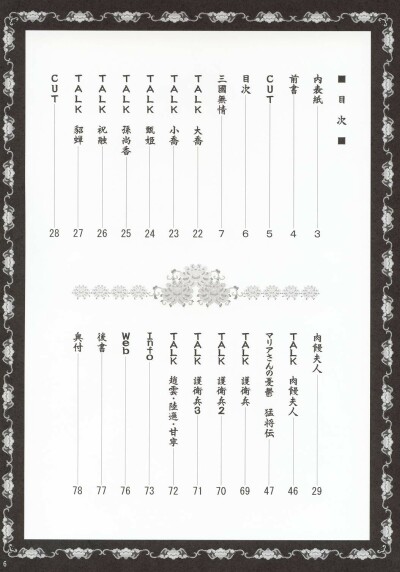 ■ 目次 ■
内表紙 3
前書 4
CUT 5
目次 6
三國無情 7
TALK 大喬 22
TALK 小喬 23
TALK 甄姫 24
TALK 孫尚香 25
TALK 祝融 26
TALK 貂蝉 27
CUT 28
肉饅夫人 29
TALK 肉饅夫人 46
マリアさんの憂鬱 猛将伝 47
TALK 護衛兵 69
TALK 護衛兵2 70
TALK 護衛兵3 71
TALK 趙雲・陸遜・甘寧 72
Info 73
Web 76
後書 77
奥付 78
6